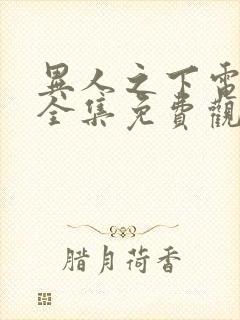 異人之下電
全集免費觀
腊月荷香